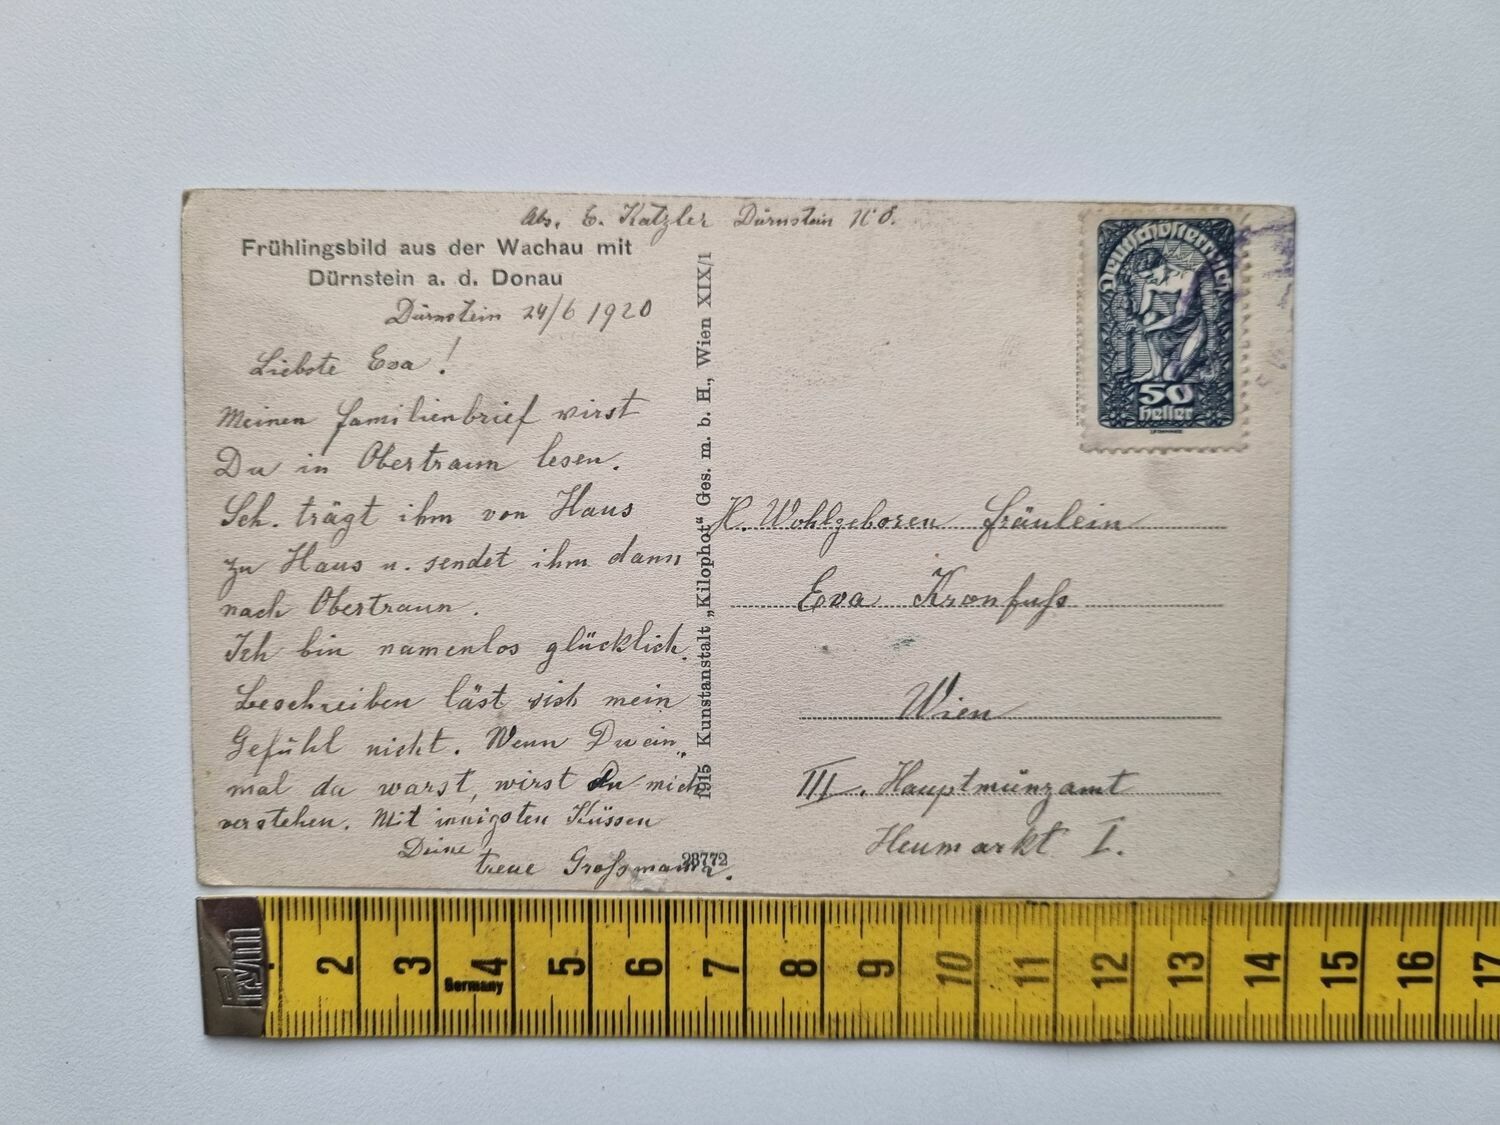 Abs. E. Katzler Dürnstein N Ö.
Frühlingsbild aus der Wachau mit
Dürnstein a. d. Donau
Dürnstein 24/6 1920
Liebste Eva!
Meinen Familienbrief wirst
Du in Obertraun lesen.
Sch. trägt ihm von Haus
zu Haus u. sendet ihm dann
nach Obertraun.
Ich bin namenlos glücklich.
Beschreiben läst sich mein
Gefühl nicht. Wenn Du ein„
mal da warst, wirst Du mich
verstehen. Mit innigsten Küssen
Deine
treue Großmama.
1915 Kunstanstalt „Kilophot“ Ges. m. b. H., Wien XIX/1
23772
Deutschösterreich
50
Heller
H. Wohlgeboren Fräulein
Eva Kronfuß
Wien
III. Hauptmünzamt
Heumarkt I.
Prym
2 3 4 5 6 7 8 9 10 11 12 13 14 15 16 17
Germany